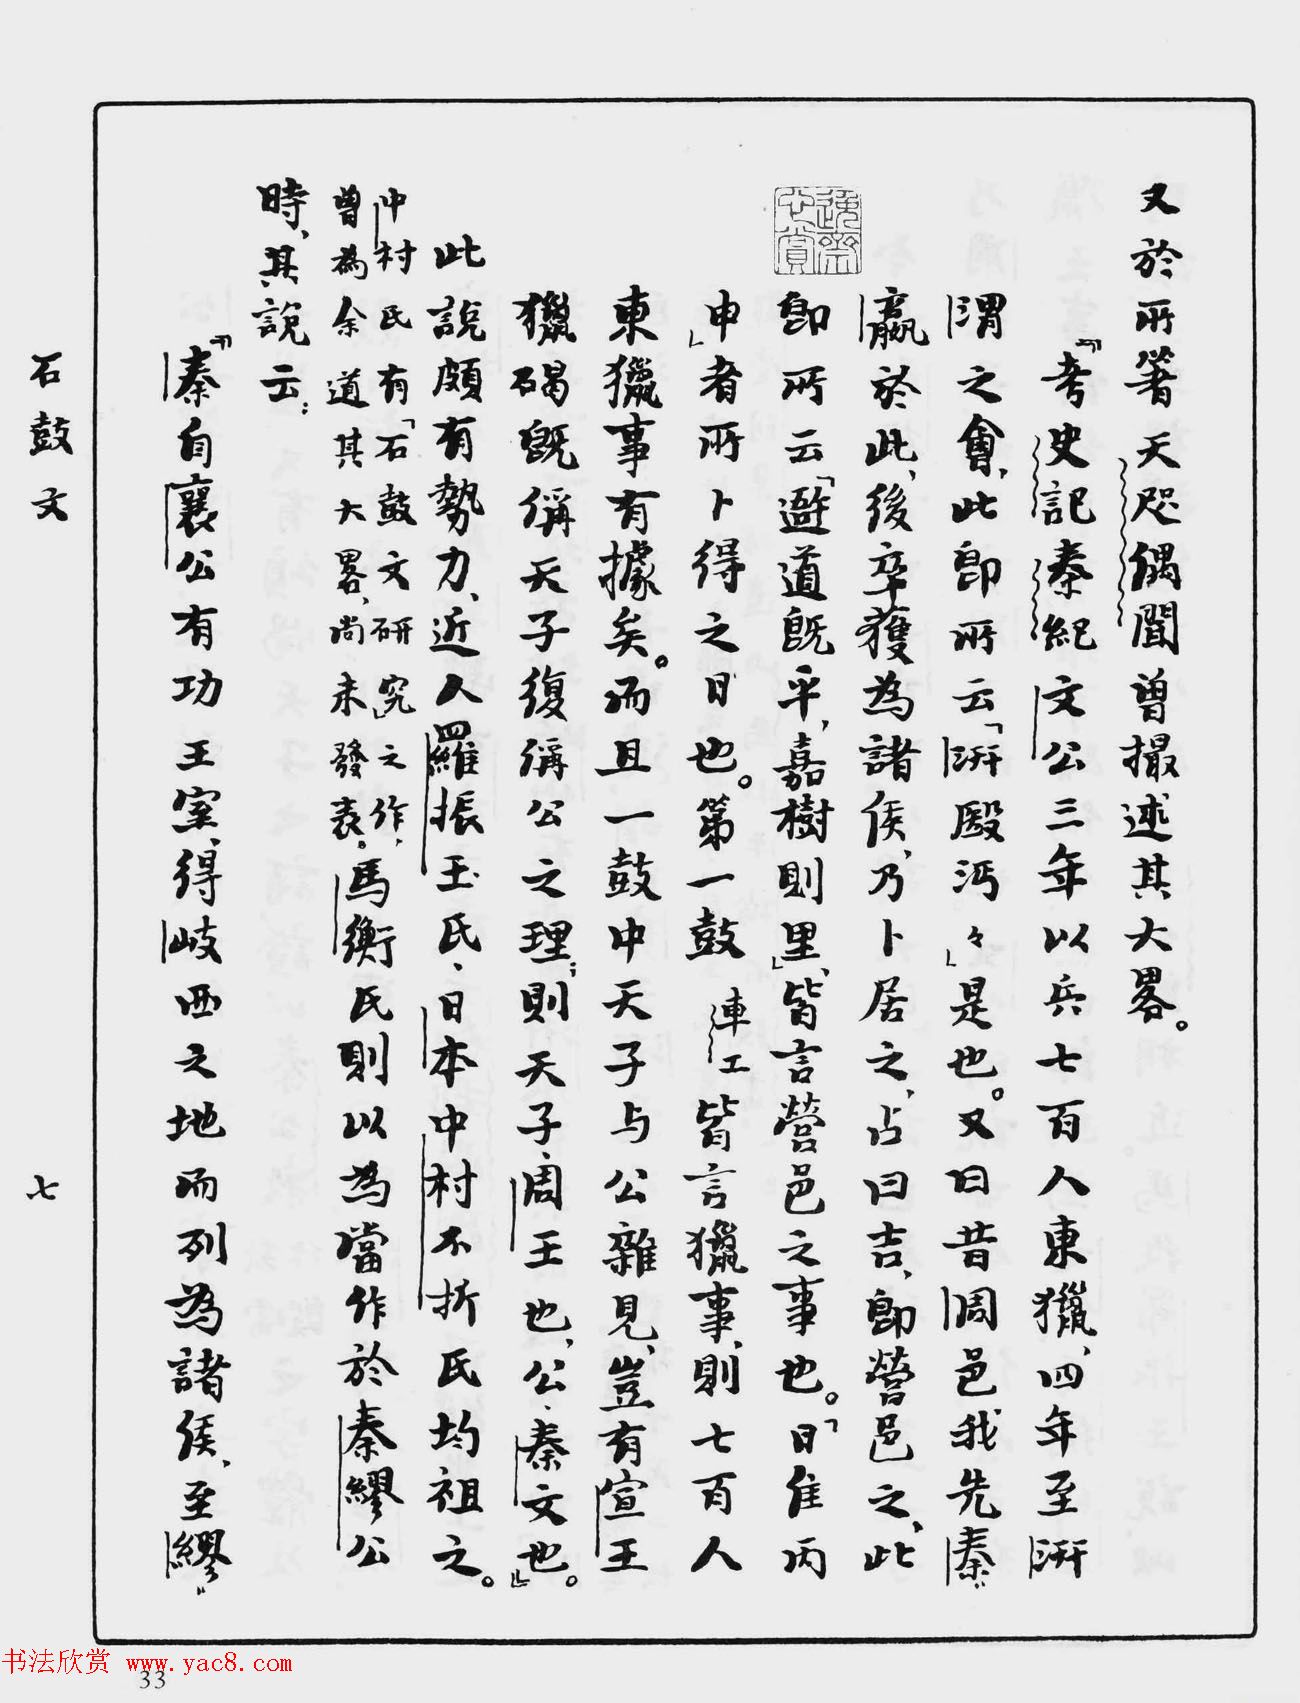 又於所箸天咫偶聞曾撮述其大畧。
『考史記秦紀文公三年以兵七百人東獵、四年至汧
渭之會、此即所云「汧殹沔々」是也。又曰昔周邑我先秦
嬴於此、後卒獲為諸侯、乃卜居之、占曰吉、即營邑之、此
即所云「避道既平、嘉樹則里」、皆言營邑之事也。「日隹丙
申」者所卜得之日也。第一鼓車工皆言獵事、則七百人
東獵事有據矣。而且一鼓中天子与公雜見、豈有宣王
獵碣既偁天子復偁公之理；則天子、周王也、公、秦文也。』
此說頗有勢力、近人羅振玉氏、日本中村不折氏均祖之。
中村氏有「石鼓文研究」之作、
曾為余道其大畧、尚未發表。馬衡氏則以為當作於秦繆公
時、其說云：
『秦自襄公有功王室、得岐西之地而列為諸侯、至繆
石鼓文
七
書法欣賞 www.yac8.com
33